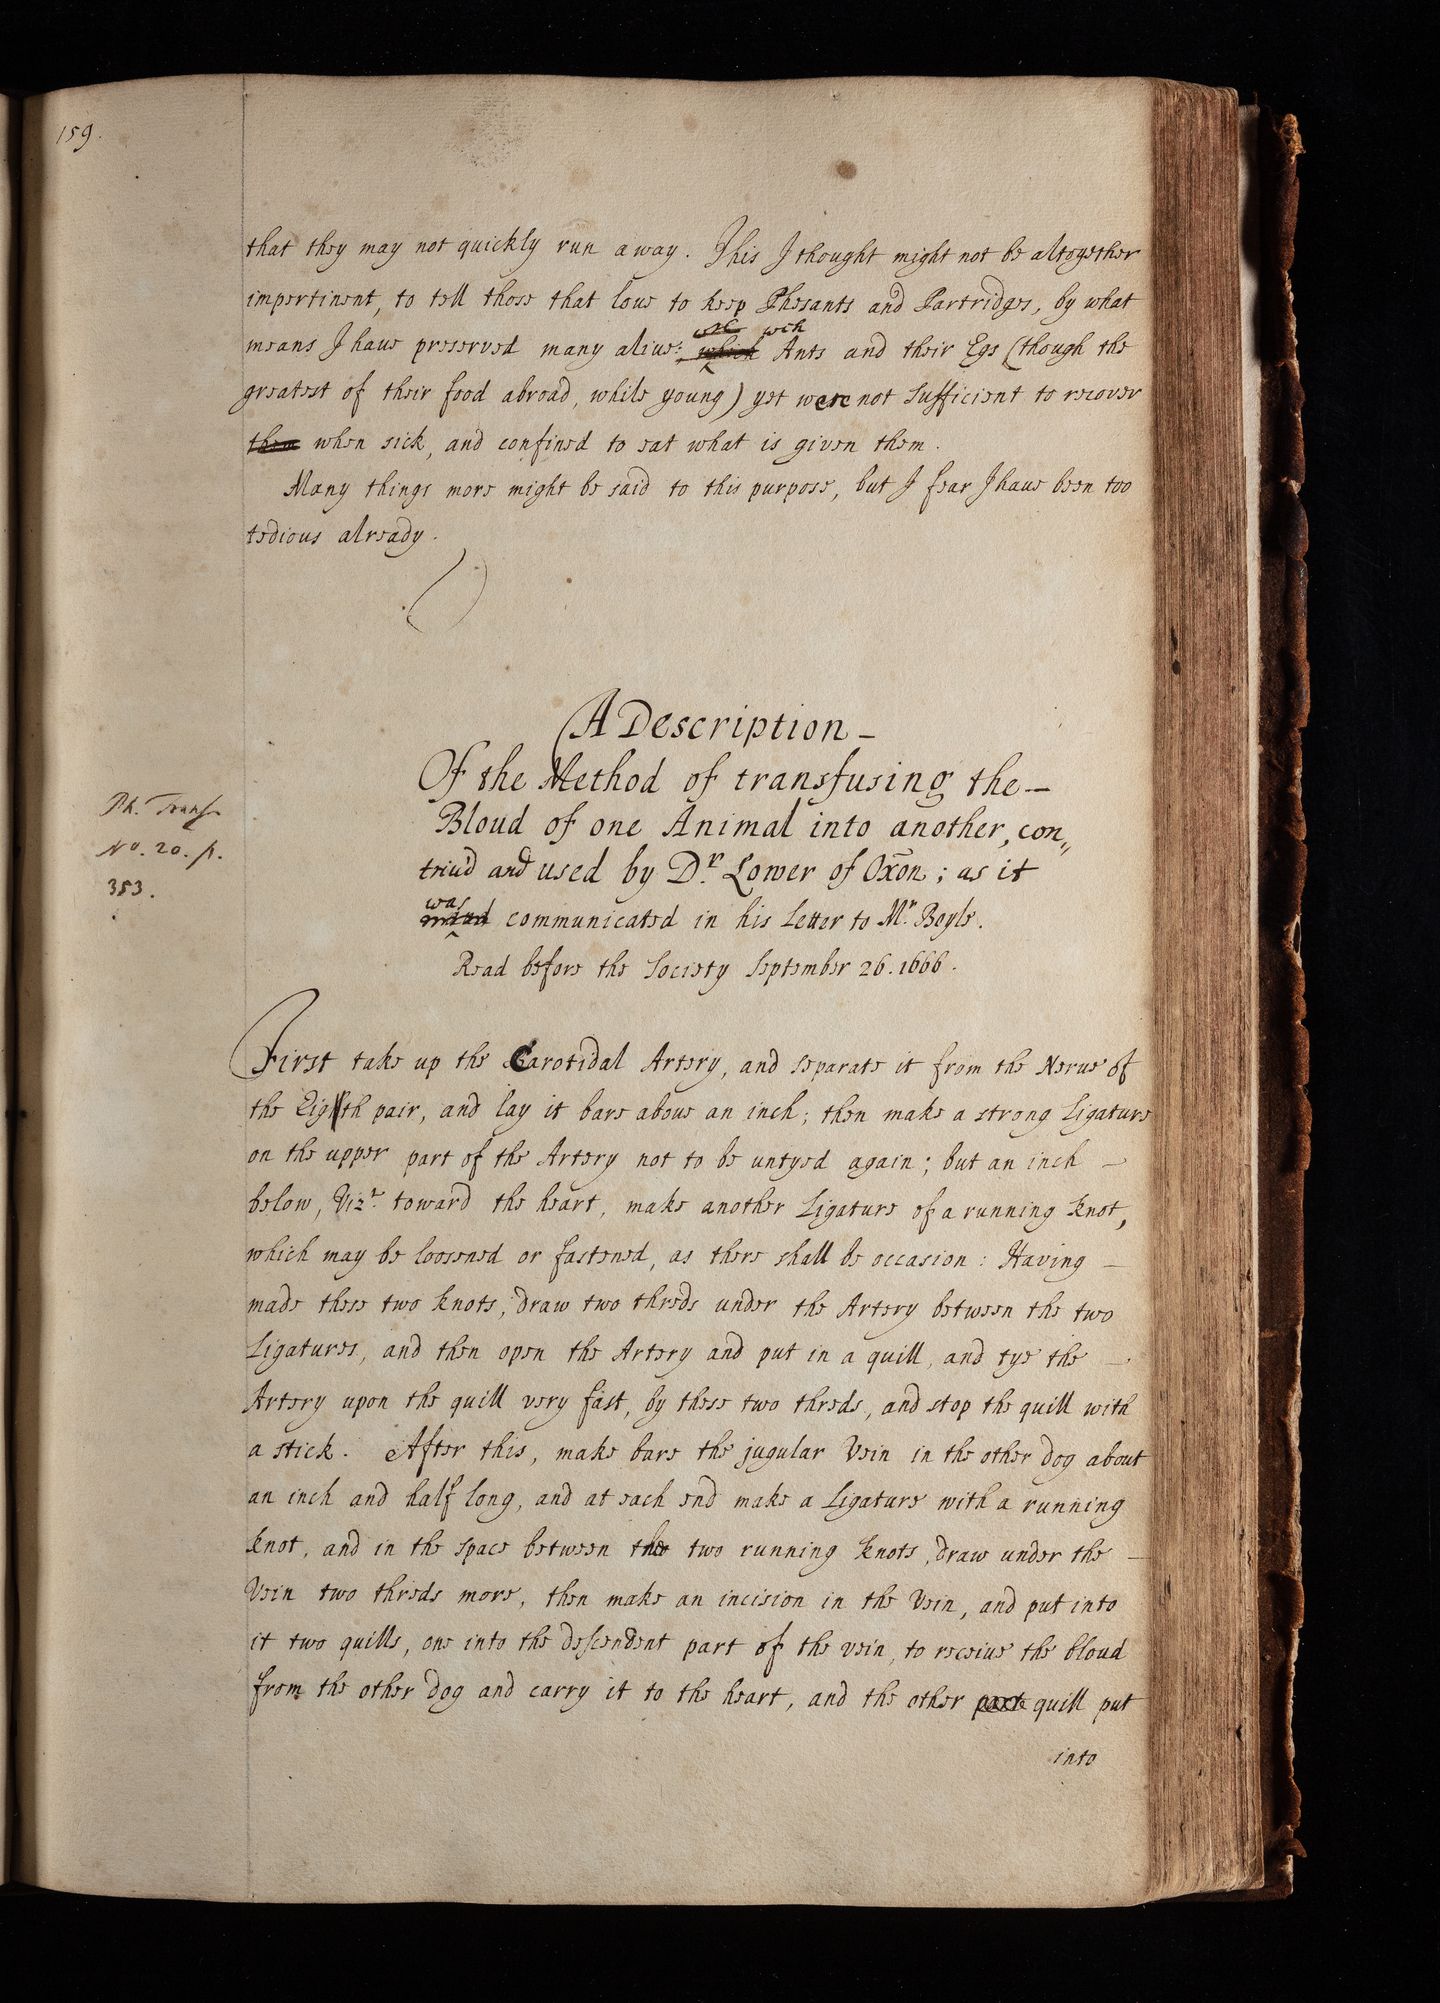 159.
that they may not quickly run away. This I thought might not be altogether
impertinent, to tell those that loue to keep Phesants and Partridges, by what
means I haue preserved many aliue: which wch Ants and their Egs (though the
greatest of their food abroad, while young) yet were not sufficient to recover
them when sick, and confined to eat what is given them.
Many things more might be said to this purpose, but I fear I haue been too
tedious already.
A Description
Of the Method of transfusing the
Ph. Trans.
No. 20. p.
353.
Bloud of one Animal into another, con„
triu'd and used by Dr. Lower of Oxōn; as it
was communicated in his Letter to Mr. Boyle.
Read before the Society September 26. 1666.
First take up the Carotidal Artery, and separate it from the Nerue of
the Eighth pair, and lay it bare aboue an inch; then make a strong Ligature
on the upper part of the Artery not to be untyed again; but an inch
below, Vizt. toward the heart, make another Ligature of a running knot,
which may be loosened or fastened, as there shall be occasion: Having
made these two knots, draw two threds under the Artery between the two
Ligatures, and then open the Artery and put in a quill, and tye the
Artery upon the quill very fast, by these two threds, and stop the quill with
a stick. After this, make bare the jugular Vein in the other dog about
an inch and half long, and at each end make a Ligature with a running
knot, and in the space between the two running knots, draw under the
Vein two threds more, then make an incision in the Vein, and put into
it two quills, one into the descendent part of the vein, to receiue the bloud
from the other dog and carry it to the heart, and the other part quill put
into